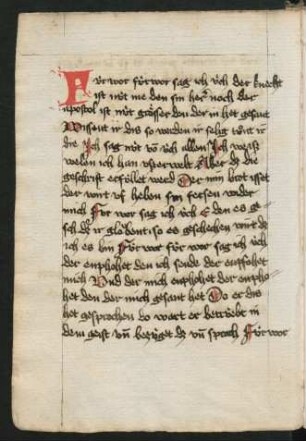 Fúr wor fúr wor sag ich úch der knecht
ist nút me den sin her noch der
apostol ist nút grösser den der in het gesant
Wissent ir dis so werden ir selig tůnt ir
die Ich sag nút vō úch allen Ich weis
welen ich han vserwelt Aber dz die
geschrift erföllet werd Der min brot isset
der wirt vf heben sin fersen wider
mich Fúr wor sag ich úch E den es ge
sch dz ir glöbent so es geschehen wirt dz
ich es bin Fúr wor fúr wor sag ich úch
der enphohet den ich sende der enpfohet
mich Vnd der mich enphohet der enpho
het den der mich gesant het Do er dis
het gesprochen do wart er betrůbt in
dem geist vn̄ bezúget dz vn̄ sprach Fúr wor